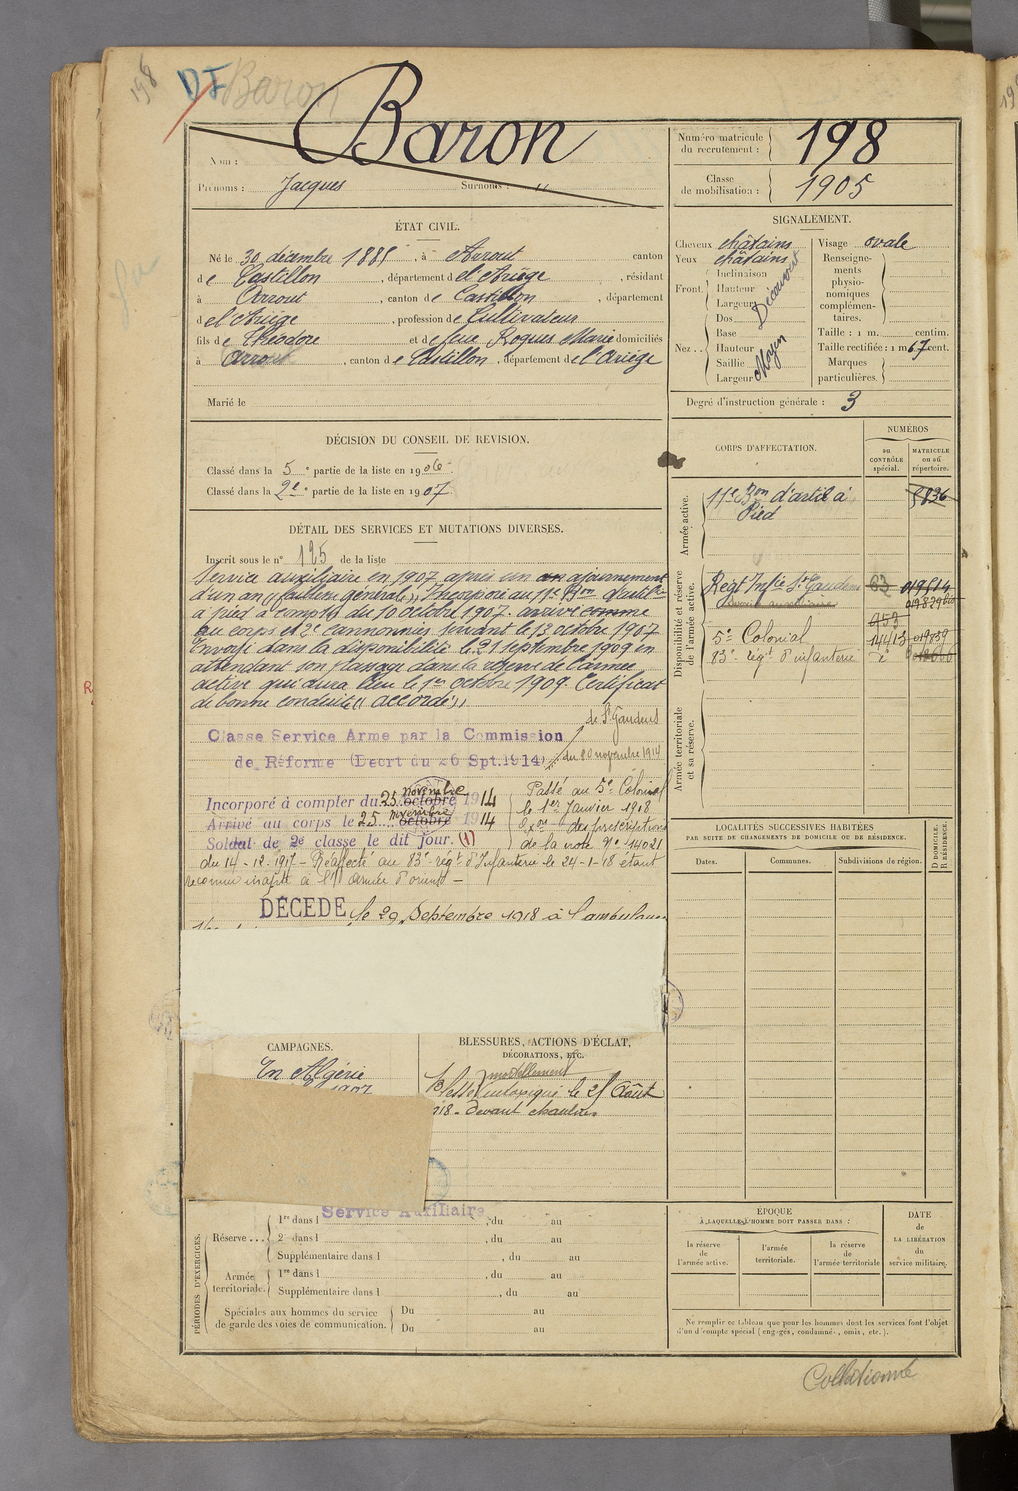 198
DF
Baron
Nom : Baron
Prénoms : Jacques Surnoms : "
Numéro matricule du recrutement : 198
Classe de mobilisation : 1905
ÉTAT CIVIL.
Né le 30 décembre 1885, à Arrout canton
de Castillon, département de l'Ariège, résidant
à Arrout, canton de Castillon, département
de l'Ariège, profession de Cultivateur
fils de Théodore et de feue Roques Marie domiciliés
à Arrout, canton de Castillon, département de l'Ariège
Marié le
SIGNALEMENT.
Cheveux châtains
Yeux châtains
Front. Inclinaison
Hauteur
Largeur
Découvert
Nez .. Dos
Base
Hauteur
Saillie
Largeur
Moyen
Visage ovale
Renseigne-
ments
physio-
nomiques
complémen-
taires.
Taille : 1 m. centim.
Taille rectifiée : 1 m 67 cent.
Marques
particulières.
Degré d'instruction générale : 3
DÉCISION DU CONSEIL DE REVISION.
Classé dans la 5e partie de la liste en 1906
Classé dans la 2e partie de la liste en 1907
DÉTAIL DES SERVICES ET MUTATIONS DIVERSES.
Inscrit sous le n° 125 de la liste
Service auxiliaire en 1907 après un an ajournement
d'un an (faiblesse générale). Incorporé au 11e Bon d'artillie
à pied à compter du 10 octobre 1907. arrivé comme
au corps et 2e cannonnier servant le 13 octobre 1907
Envoyé dans la disponibilité le 21 septembre 1909 en
attendant son passage dans la réserve de l'armée
active qui aura lieu le 1er octobre 1909. Certificat
de bonne conduite "accordé"
Classe Service Arme par la Commission de St Gaudens
de Réforme (Decrt du 26 Spt.1914) du 20 novembre 1914
Incorporé à compter du 25 octobre novembre 1914
Arrivé au corps le 25 octobre novembre 1914
Soldat de 2e classe le dit jour. (1)
Passé au 5e Colonial
le 1er Janvier 1918
Exon des prescriptions
de la note N° 14021
du 14-12-1917 - Réaffecté au 83e régt d'Infanterie le 24-1-18 étant
reconnu inapte à l'armée d'orient -
DÉCÉDÉ le 29 Septembre 1918 à l'ambulance
CORPS D'AFFECTATION.
NUMÉROS
au CONTRÔLE spécial.
MATRICULE ou au répertoire.
Armée active.
11e Bon d'artie à
Pied
5836
Disponibilité et réserve de l'armée active.
Régt Infie St Gaudens 63
Service auxiliaire
963
5e Colonial 14413
83e régt d'infanterie
Armée territoriale et sa réserve.
LOCALITÉS SUCCESSIVES HABITÉES
PAR SUITE DE CHANGEMENTS DE DOMICILE OU DE RÉSIDENCE.
Dates. Communes. Subdivisions de région.
D DOMICILE. R RÉSIDENCE.
CAMPAGNES.
En Algérie
BLESSURES, ACTIONS D'ÉCLAT,
DÉCORATIONS, ETC.
mortellement
Blessé intoxiqué le 21 Août
918. Devant chaulnes
Service Auxiliaire
PÉRIODES D'EXERCICES.
Réserve ... 1re dans l , du au
2e dans l , du au
Supplémentaire dans l , du au
Armée territoriale. 1re dans l , du au
Supplémentaire dans l , du au
Spéciales aux hommes du service
de garde des voies de communication.
Du au
Du au
ÉPOQUE
À LAQUELLE L'HOMME DOIT PASSER DANS :
la réserve de l'armée active.
l'armée territoriale.
la réserve de l'armée territoriale
DATE
de
LA LIBÉRATION
du
service militaire.
Ne remplir ce tableau que pour les hommes dont les services font l'objet
d'un décompte spécial (engagés, condamnés, omis, etc.).
Collationné